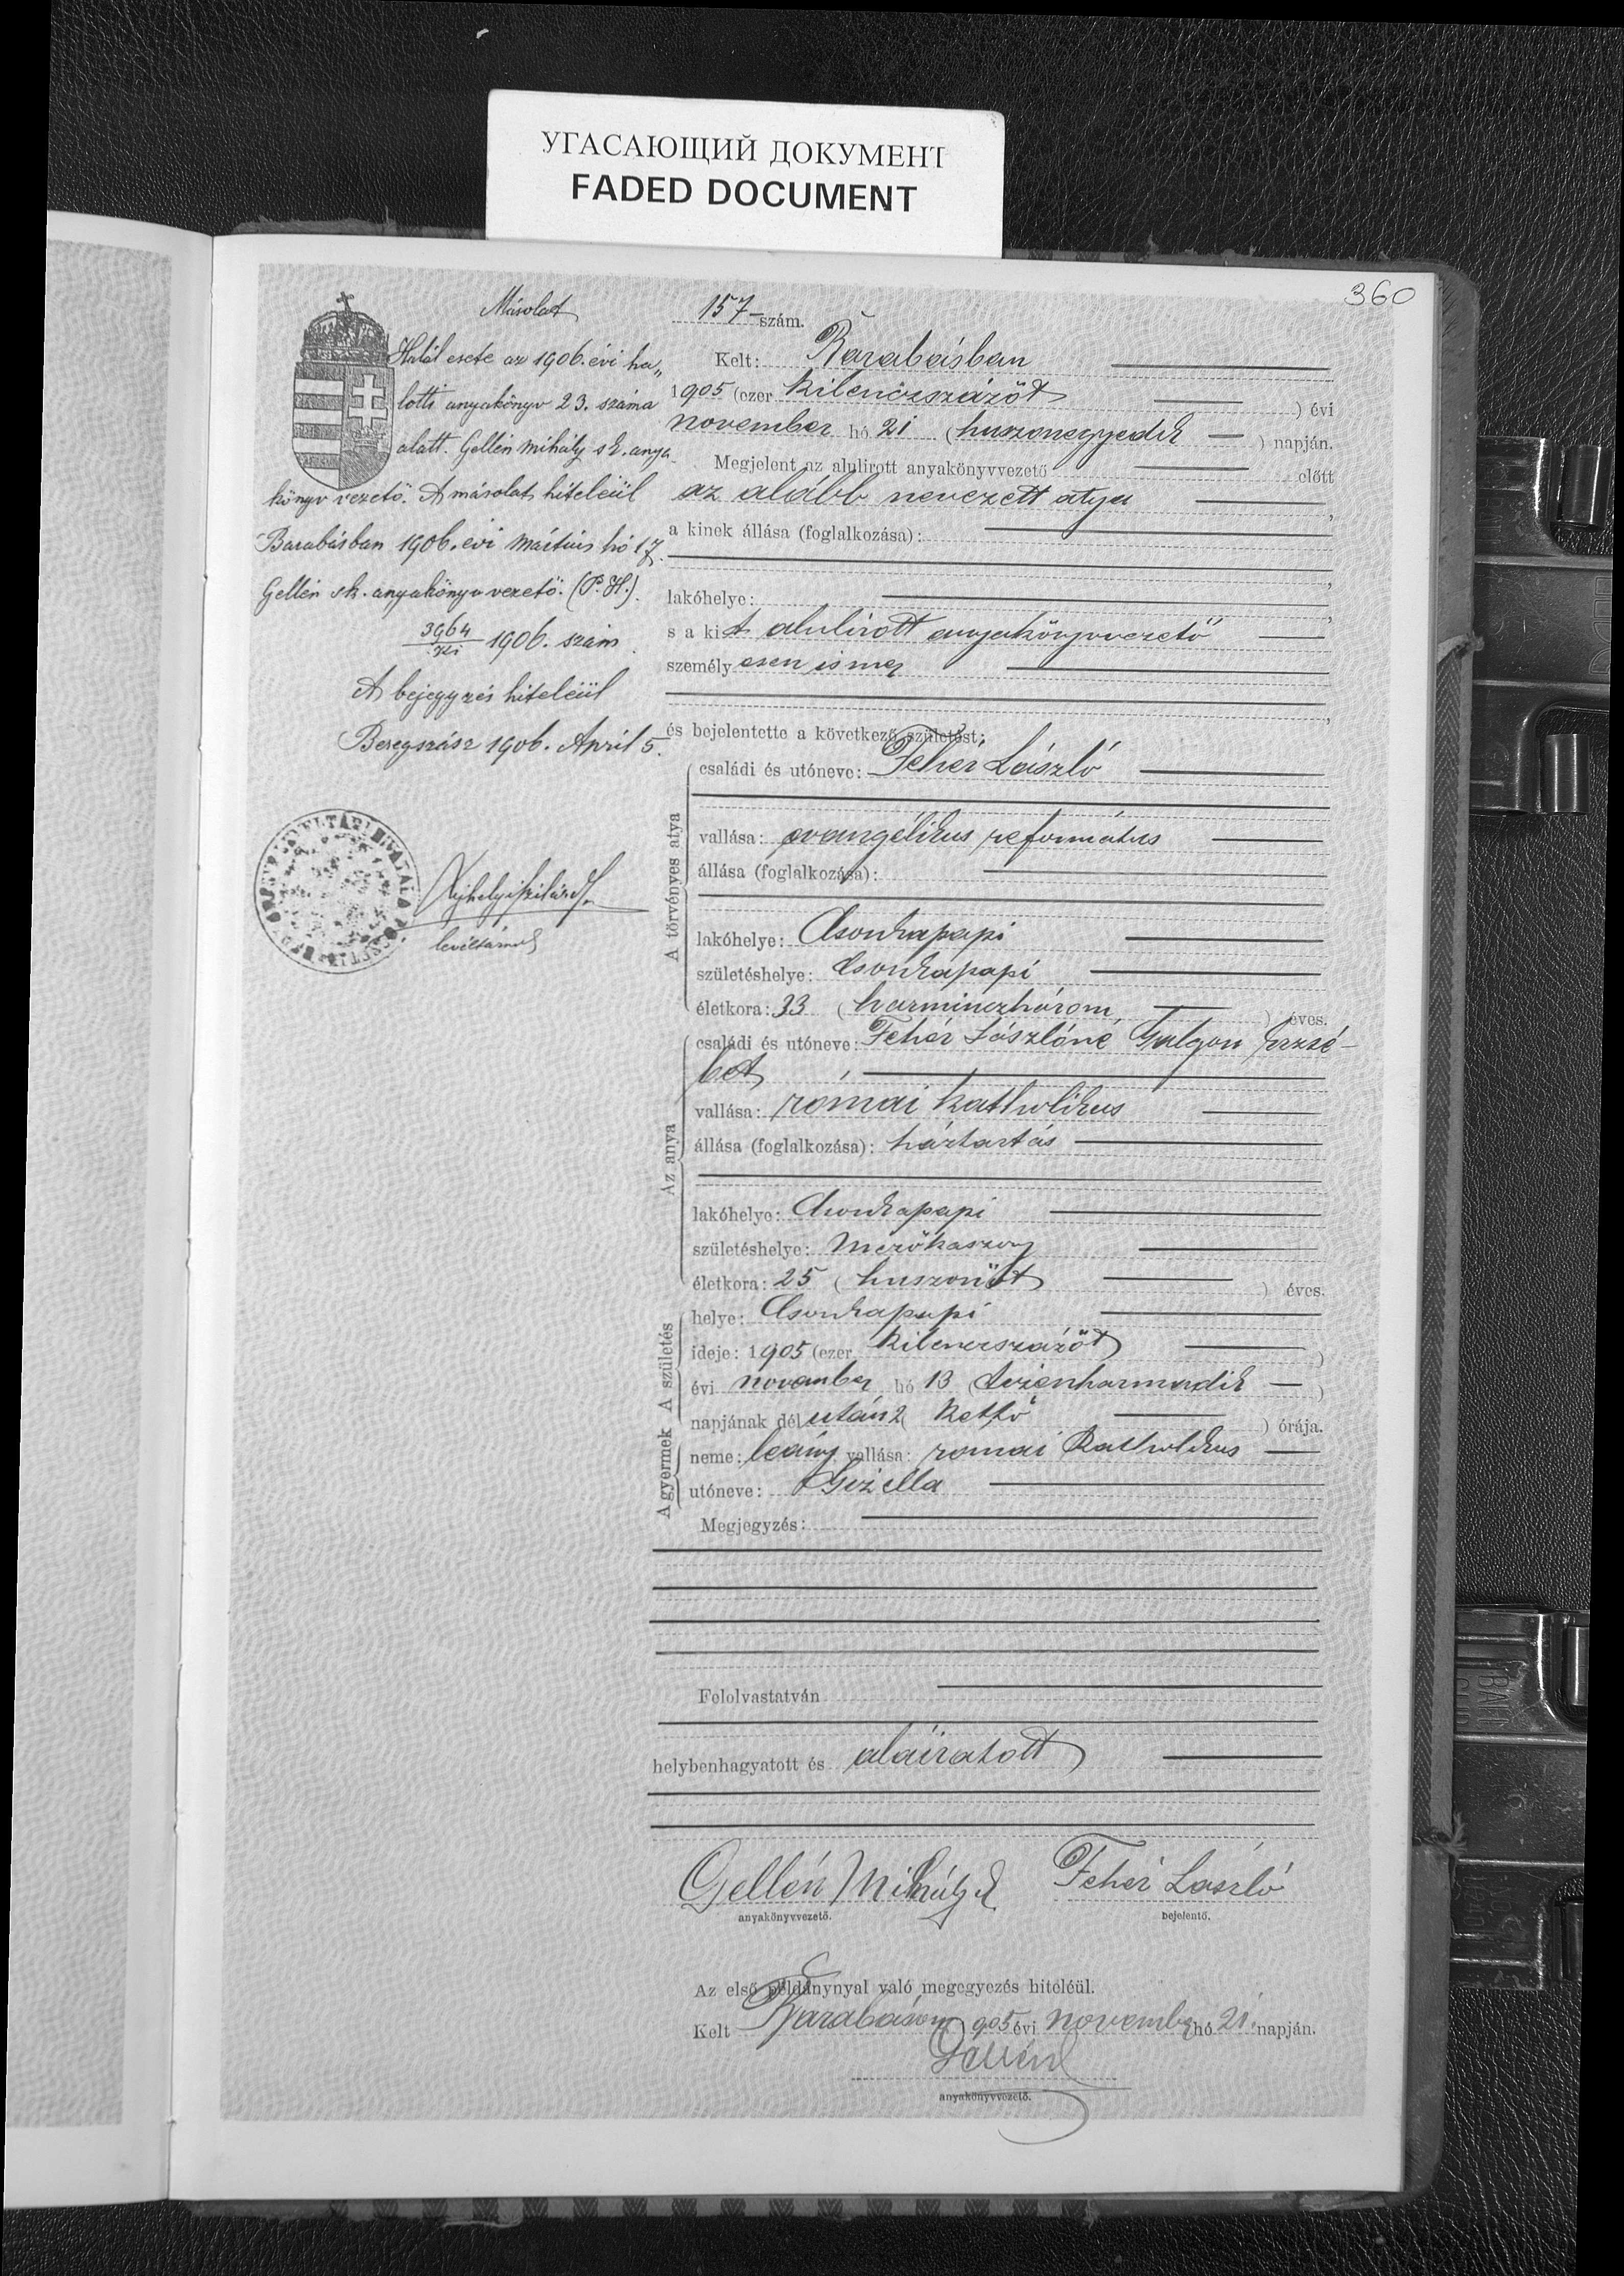 УГАСАЮЩИЙ ДОКУМЕНТ
FADED DOCUMENT
360
Másolat
Halál esete az 1906. évi ha„
lotti anyakönyv 23. száma
alatt. Gellén Mihály sk. anya
könyvvezető. A másolat hiteléül
Barabásban 1906. évi Mártius hó 17.
Gellén sk. anyakönyvvezető. (P. H.).
3964 1906. szám
A bejegyzés hiteléül
Beregszász 1906. April 5.
levéltárnok
157 szám.
Kelt: Barabásban
1905 (ezer kilenczszázöt ) évi
november hó 21 (huszonegyedik ) napján.
Megjelent az alulirott anyakönyvvezető előtt
az alább nevezett atya ,
a kinek állása (foglalkozása):
,
lakóhelye: ,
s a kit alulirott anyakönyvvezető
személyesen ismer
,
és bejelentette a következő születést:
A törvényes atya
családi és utóneve: Fehér László
vallása: evangélikus református
állása (foglalkozása):
lakóhelye: Csonkapapi
születéshelye: Csonkapapi
életkora: 33 (harminczhárom, ) éves.
Az anya
családi és utóneve: Fehér Lászlóné Galgon Erzsé-
bet
vallása: római katholikus
állása (foglalkozása): háztartás
lakóhelye: Csonkapapi
születéshelye: Mezőkaszony
életkora: 25 (huszonöt ) éves.
A születés
helye: Csonkapapi
ideje: 1905 (ezer kilenczszázöt )
évi november hó 13 (tizenharmadik )
napjának délután 2 ( kettő ) órája.
A gyermek
neme: leány vallása: romai katholikus
utóneve: Gizella
Megjegyzés:
Felolvastatván
helybenhagyatott és aláiratott
Gellén Mihály Fehér László
anyakönyvvezető. bejelentő.
Az első példánynyal való megegyezés hiteléül.
Kelt Barabáson 1905 évi november hó 21. napján.
Gellén
anyakönyvvezető.